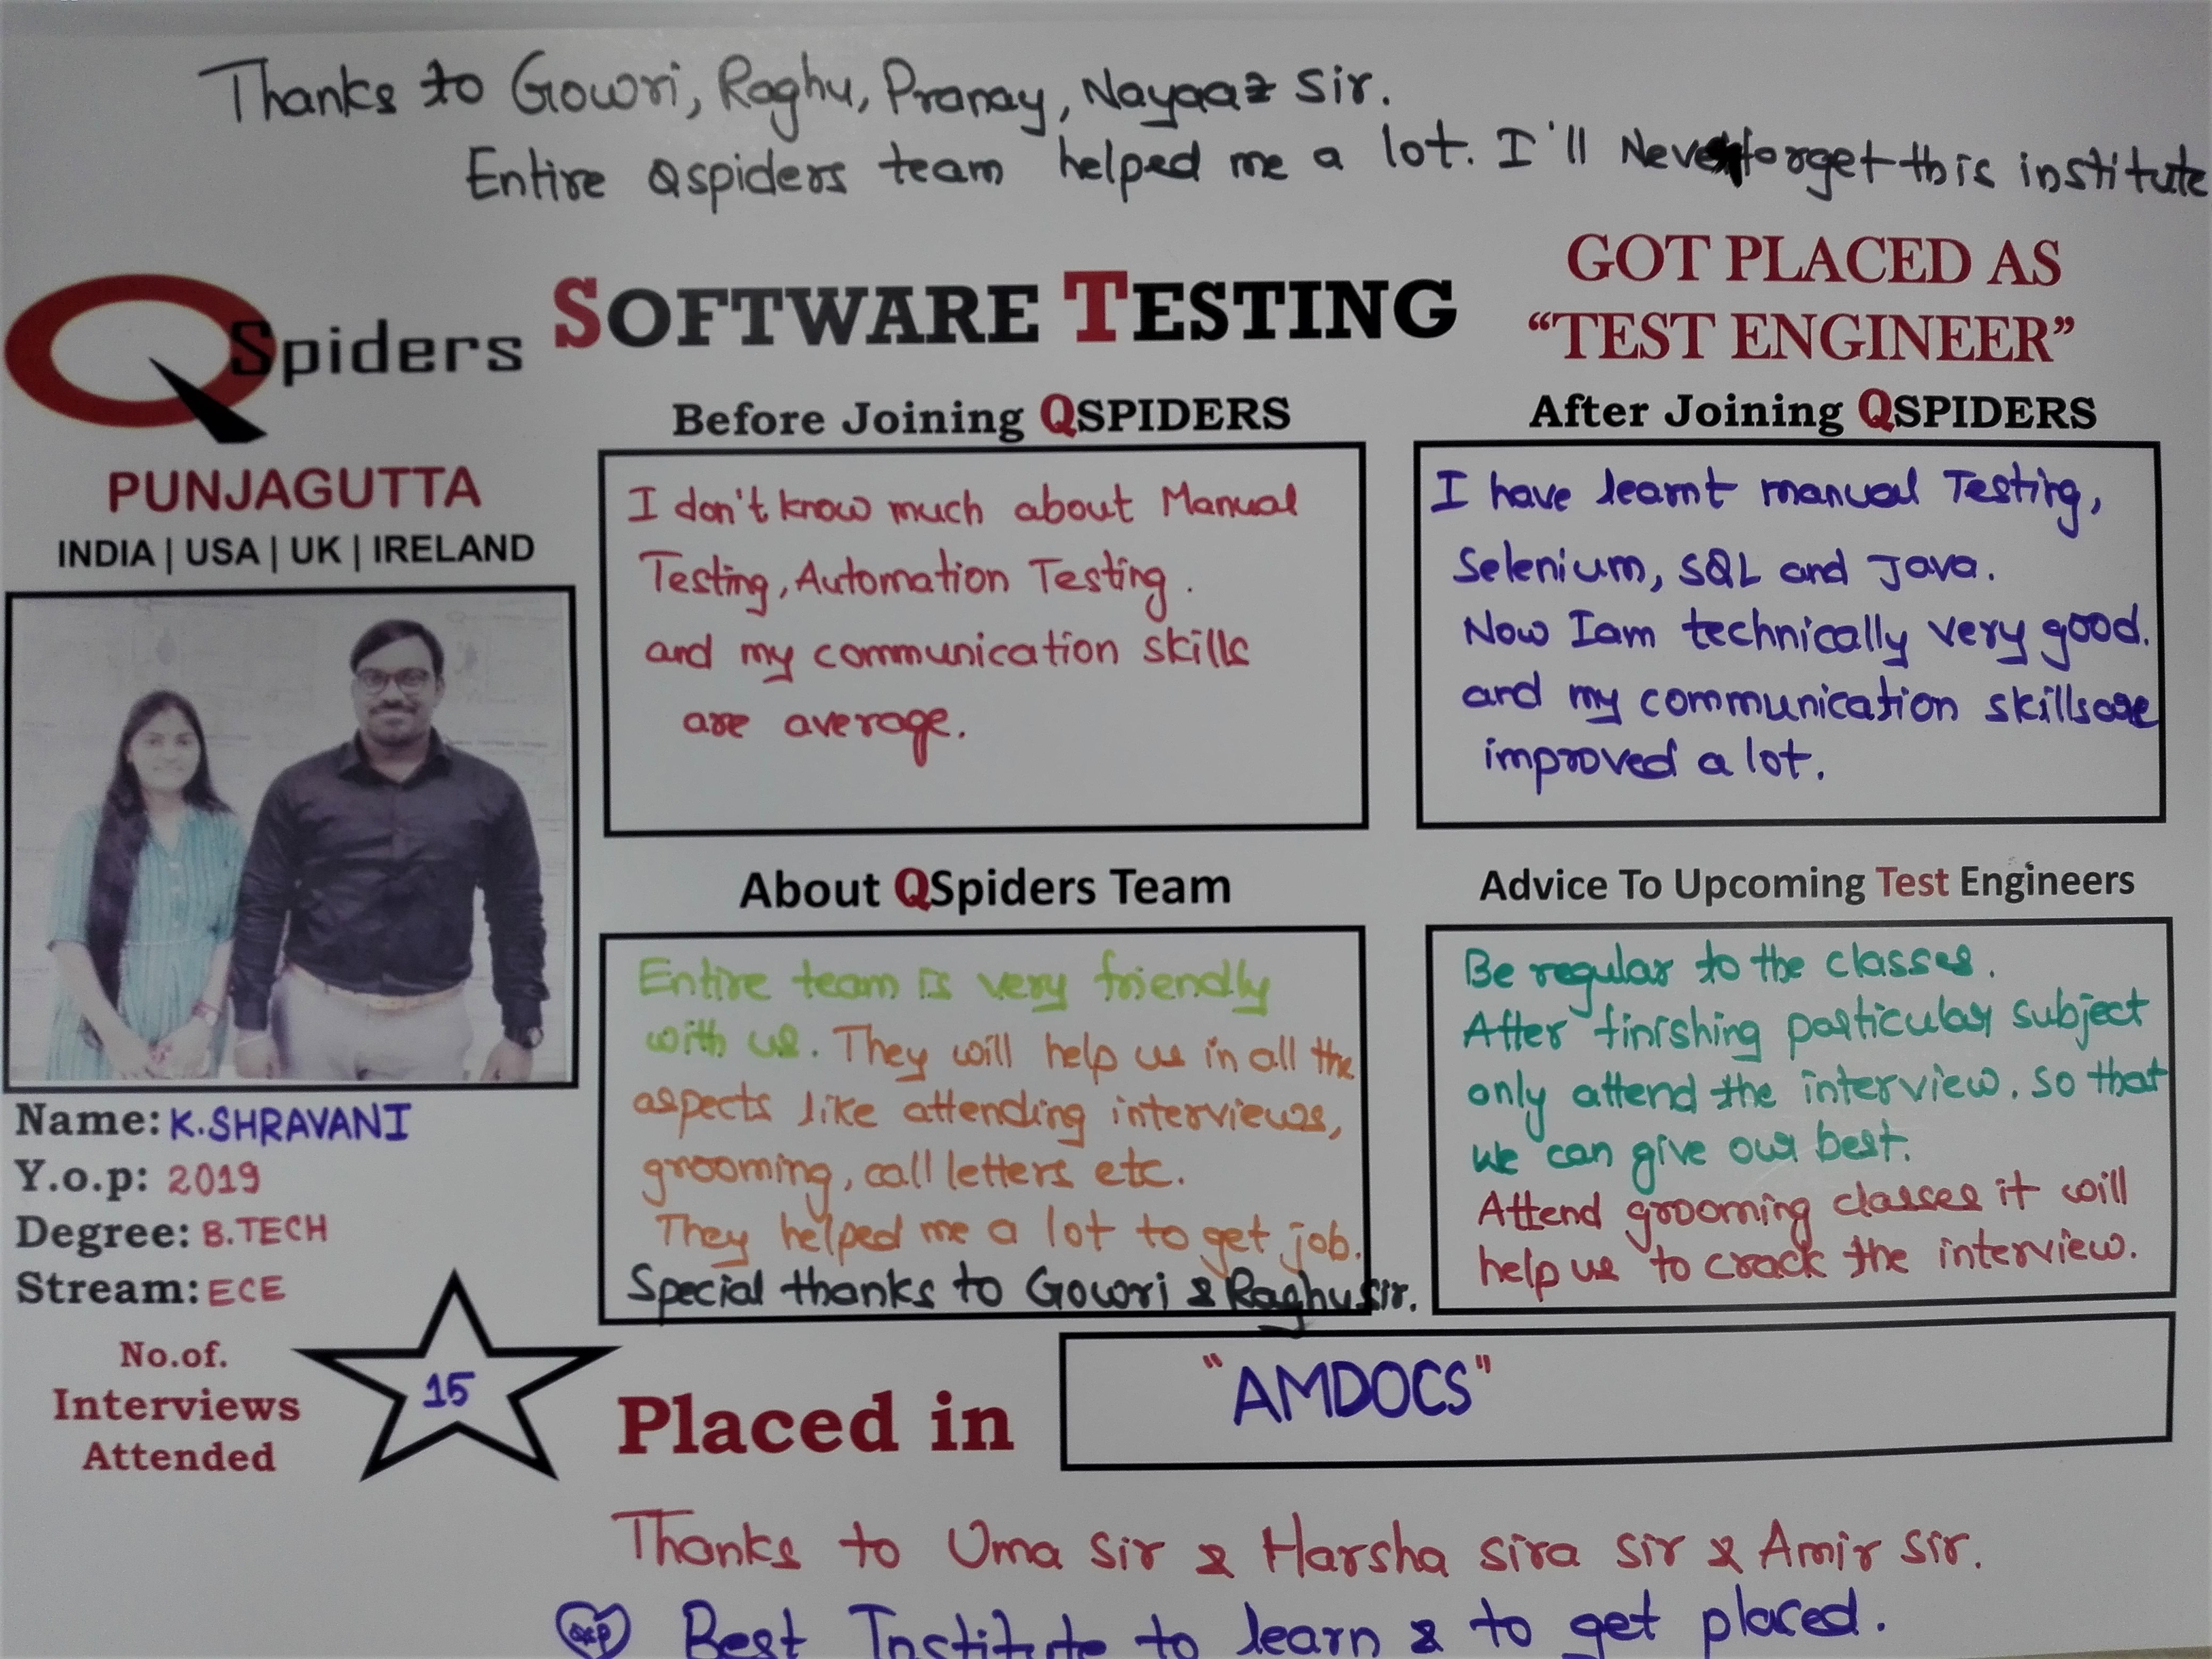 Thanks to Gowri, Raghu, Pranay, Nayaaz Sir.
Entire Qspiders team helped me a lot. I'll Never forget this institute
QSpiders
SOFTWARE TESTING
GOT PLACED AS
"TEST ENGINEER"
PUNJAGUTTA
INDIA | USA | UK | IRELAND
Before Joining QSPIDERS
I don't know much about Manual
Testing, Automation Testing.
and my communication skills
are average.
After Joining QSPIDERS
I have learnt manual Testing,
Selenium, SQL and Java.
Now Iam technically very good.
and my communication skills are
improved a lot.
About QSpiders Team
Entire team is very friendly
with us. They will help us in all the
aspects like attending interviews,
grooming, call letters etc.
They helped me a lot to get job.
Special thanks to Gowri & Raghu sir.
Advice To Upcoming Test Engineers
Be regular to the classes.
After finishing particular subject
only attend the interview. so that
we can give our best.
Attend grooming classes it will
help us to crack the interview.
Name: K.SHRAVANI
Y.o.p: 2019
Degree: B.TECH
Stream: ECE
No.of.
Interviews
Attended
15
Placed in
"AMDOCS"
Thanks to Uma sir & Harsha sira sir & Amir sir.
Best Institute to learn & to get placed.